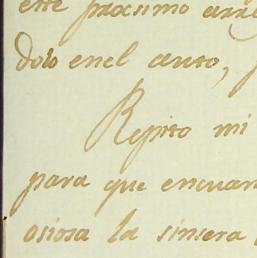 este proximo arri
dolo enel auto,
Repito mi
para que encuan
osiosa la sinsera